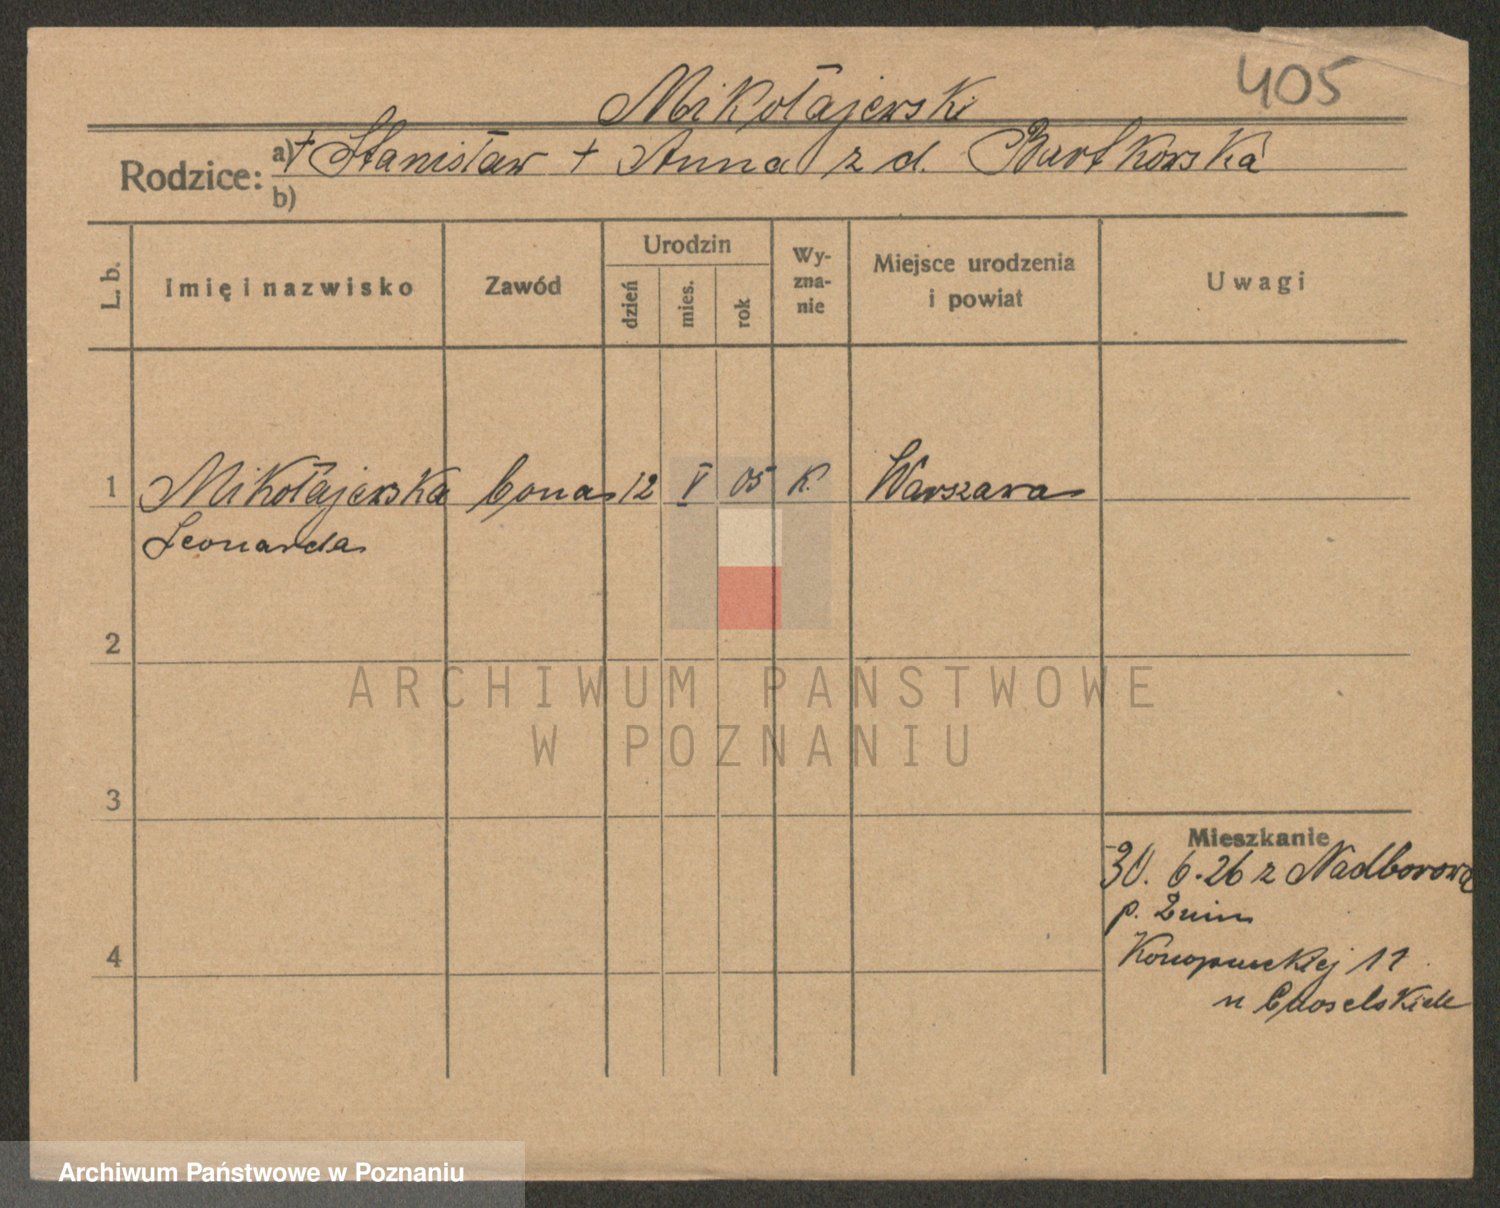 405
Mikołajewski
Rodzice: a) + Stanisław + Anna z d. Bartkowska
b)
L. b.
Imię i nazwisko
Zawód
Urodzin
dzień
mies.
rok
Wy-
zna-
nie
Miejsce urodzenia
i powiat
Uwagi
1 Mikołajewska 12 V 05 K. Warszawa
Leonarda
2
3
4
Mieszkanie
30. 6. 26 z Nadborowa
p. Żnin
11
u
ARCHIWUM PAŃSTWOWE
W POZNANIU
Archiwum Państwowe w Poznaniu